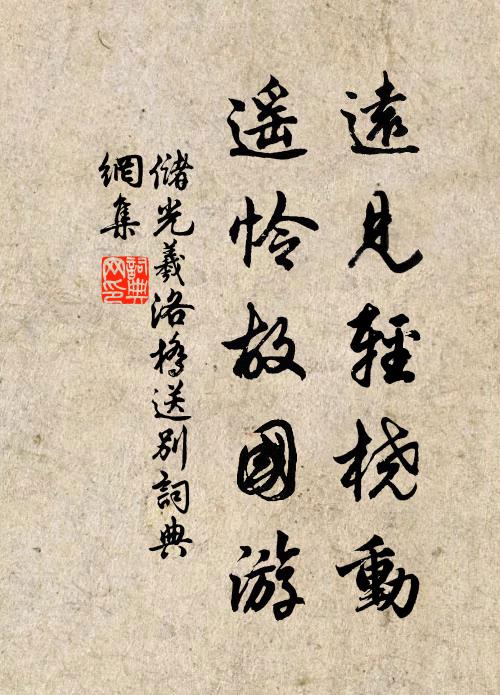 遠見輕橈動
遙憐故國游
儲光羲洛橋送別詞典
網集
詞典
网印